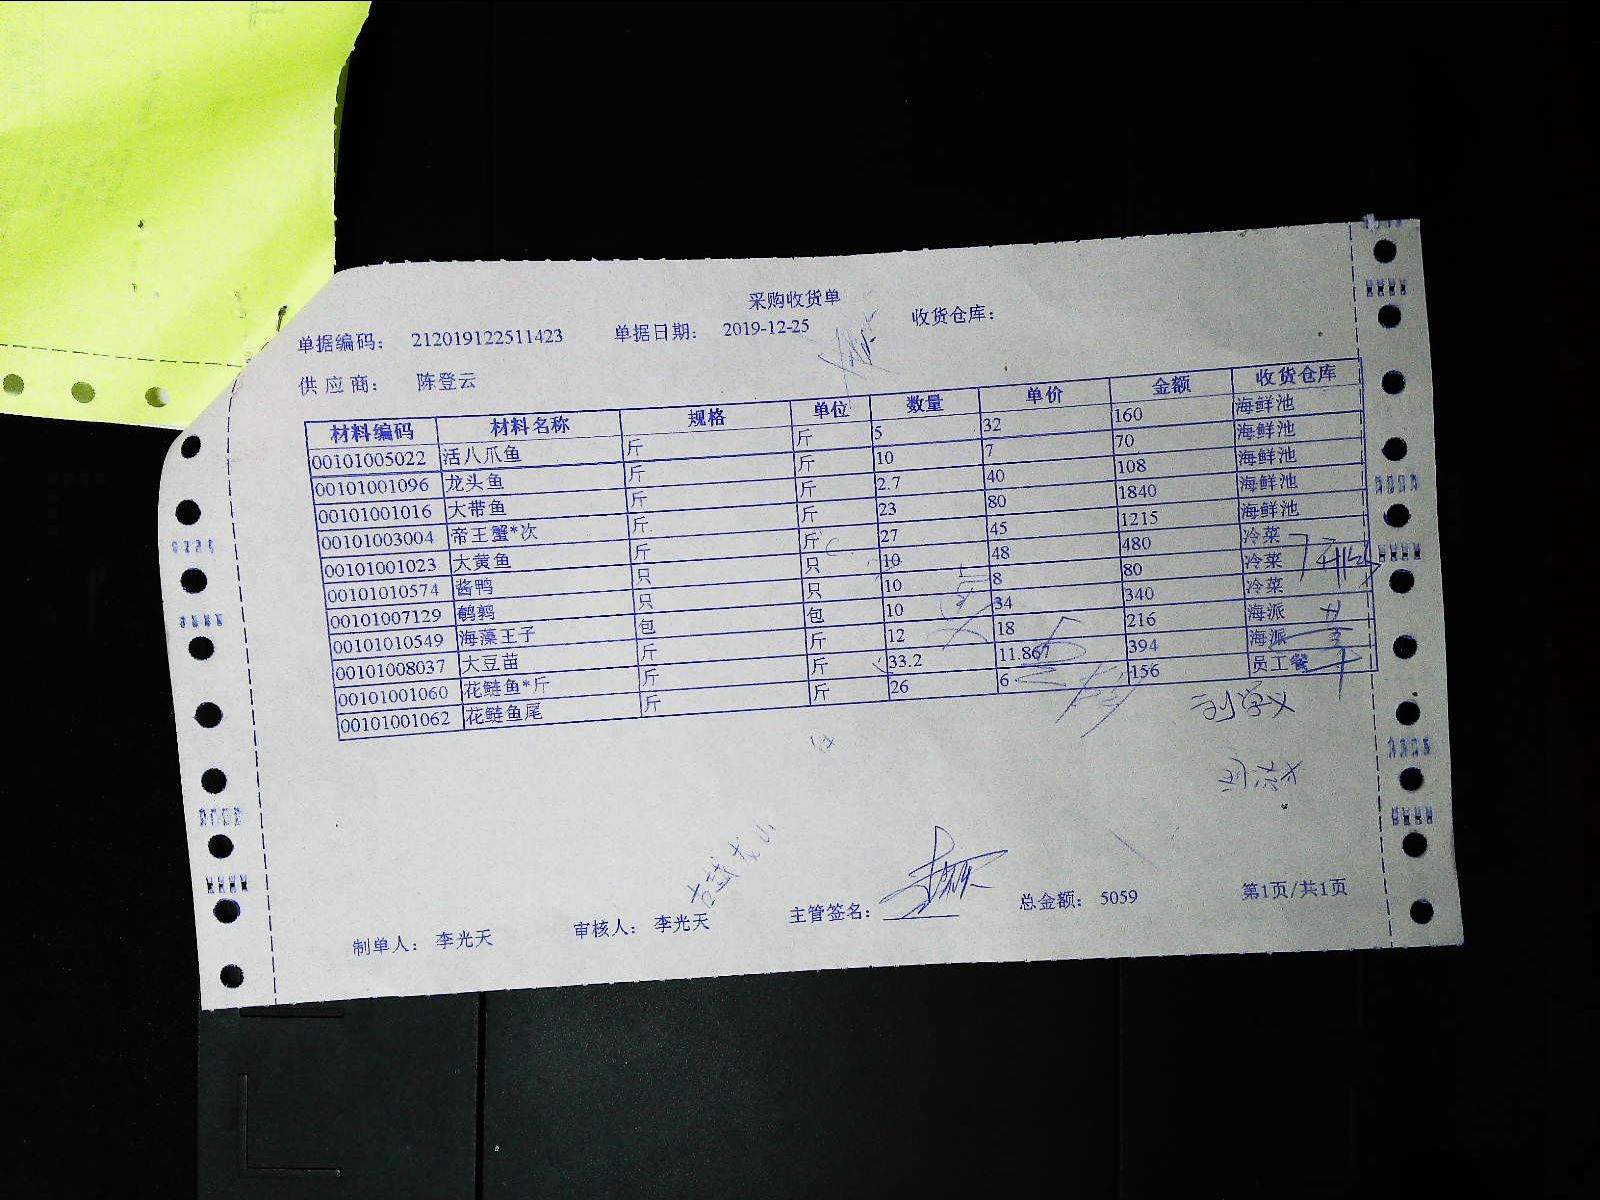 采购收货单
单据编码： 212019122511423 单据日期： 2019-12-25 收货仓库：
供应商： 陈登云
材料编码 材料名称 规格 单位 数量 单价 金额 收货仓库
00101005022 活八爪鱼 斤 斤 5 32 160 海鲜池
00101001096 龙头鱼 斤 斤 10 7 70 海鲜池
00101001016 大带鱼 斤 斤 2.7 40 108 海鲜池
00101003004 帝王蟹*次 斤 斤 23 80 1840 海鲜池
00101001023 大黄鱼 斤 斤 27 45 1215 海鲜池
00101010574 酱鸭 只 只 10 48 480 冷菜
00101007129 鹌鹑 只 只 10 8 80 冷菜
00101010549 海藻王子 包 包 10 34 340 冷菜
00101008037 大豆苗 斤 斤 12 18 216 海派
00101001060 花鲢鱼*斤 斤 斤 33.2 11.867 394 海派
00101001062 花鲢鱼尾 斤 斤 26 6 156 员工餐
制单人： 李光天 审核人： 李光天 主管签名： 总金额： 5059 第1页/共1页